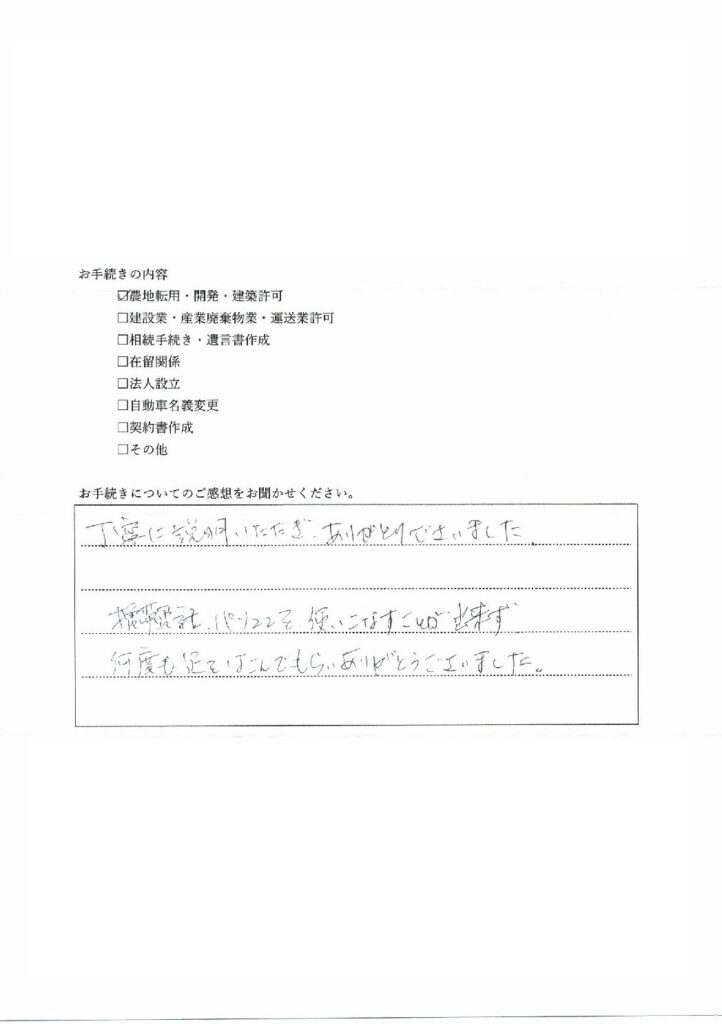 お手続きの内容
☑農地転用・開発・建築許可
□建設業・産業廃棄物業・運送業許可
□相続手続き・遺言書作成
□在留関係
□法人設立
□自動車名義変更
□契約書作成
□その他
お手続きについてのご感想をお聞かせください。
丁寧に説明いただき、ありがとうございました。
携帯電話、パソコンを、使いこなすことが出来ず
何度も足をはこんでもらいありがとうございました。